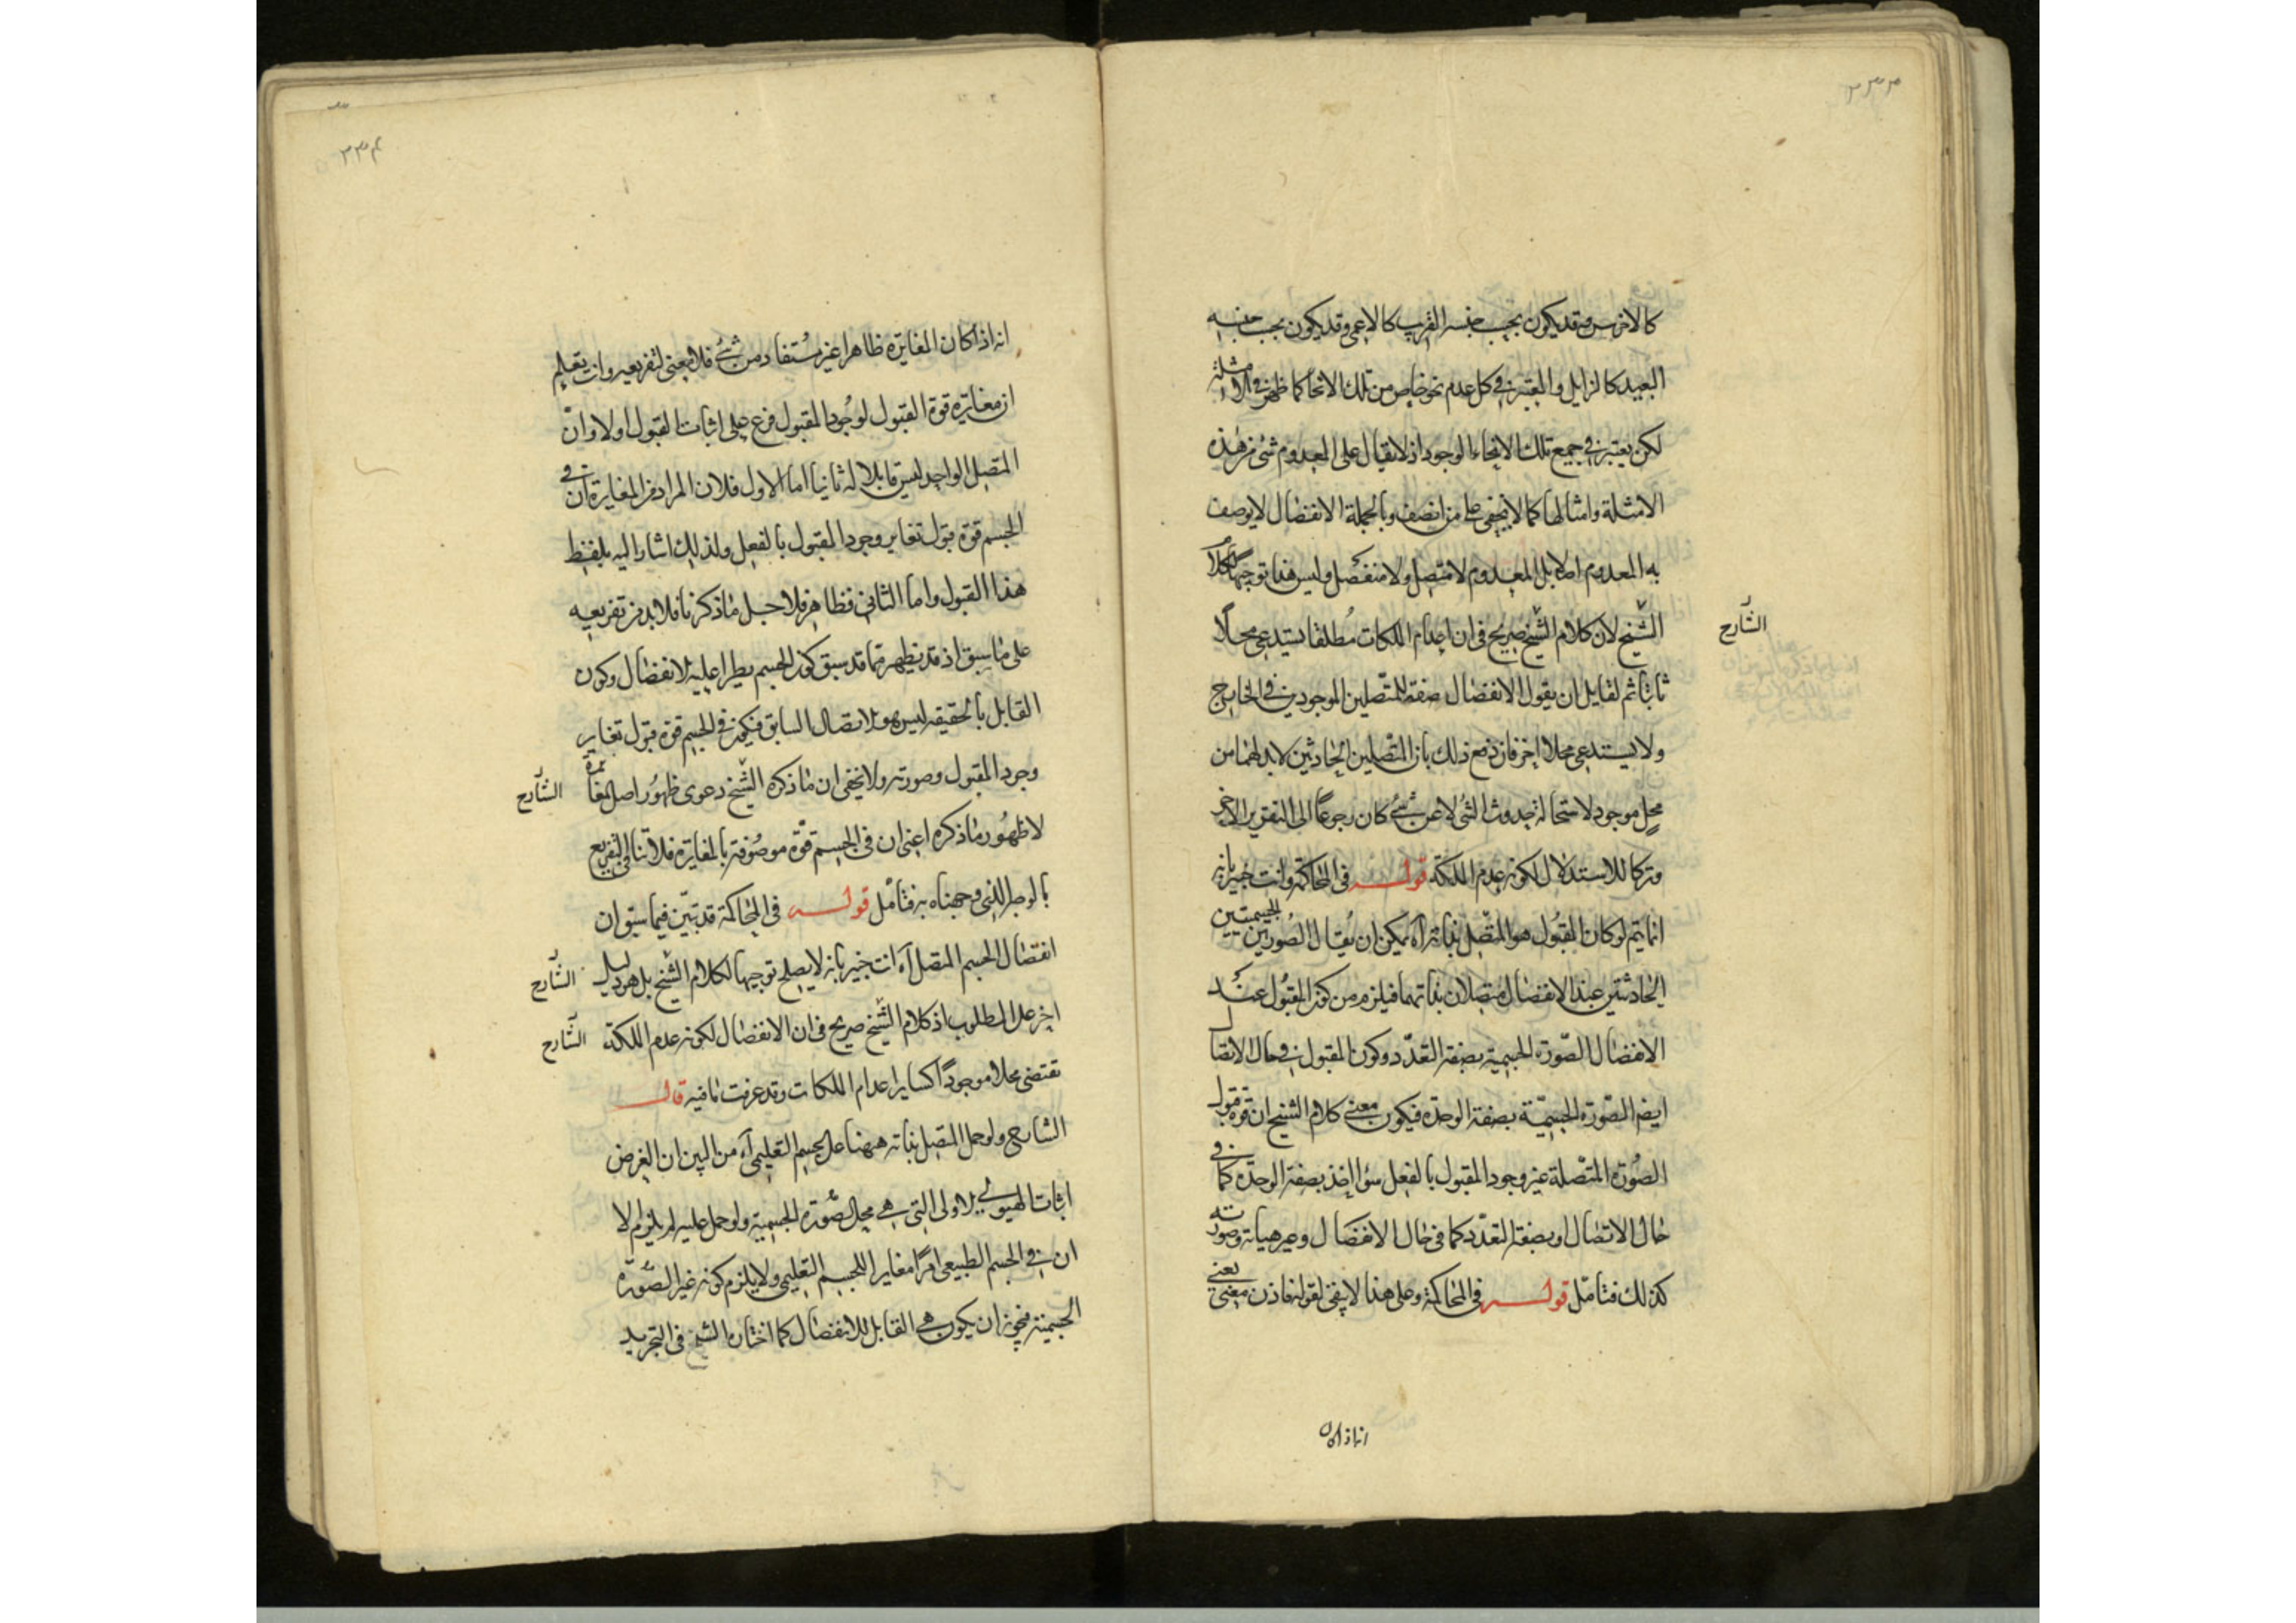 ٢٣٣
كالاخرس وقد يكون بحسب جنسه القريب كالاعمى وقد يكون بحسب جنسه
البعيد كالزايل والمعتبر فى كل عدم نحو خاص من تلك الانحا كما ظهر فى الامثلة
لكن يعتبر فى جميع تلك الانحاء الوجود اذ لا يقال على المعدوم شئ من هذه
الامثلة وامثالها كما لا يخفى على من انصف وبالجملة الانفصال لا يوصف
به المعدوم اصلا بل المعدوم لا متصل ولا منفصل وليس هذا توجيها لكلام
الشيخ لان كلام الشيخ صريح فى ان اعدام الملكات مُطلقا يستدعى محلًا
الشارح
ثابتا ثم لقايل ان يقول الانفصال صفة للمتّصلين الموجودين فى الخارج
ولا يستدعى محلا اخر فان دفع ذلك بان المتصلين الحادثين لابد لهما من
محل موجود لاستحالة حدوث الشئ لا عن شئ كان رجوعًا الى التقرير الاخر
وتركا للاستدلال لكونه عدم الملكة قوله فى المحاكمة وانت خبير بانه
انما يتم لو كان المقبُول هو المتّصل بذاته آه يمكن ان يُقال الصُورتين الجسميتين
الحادثتين عند الانفصال متصلان بذاتهما فيلزم من كون المقبُول عند
الانفصال الصّورة الجسمية بصفة التعدّد وكون المقبول فى حال الاتصال
ايضا الصّورة الجسميّة بصفة الوحدة فيكون معنى كلام الشيخ ان قوة قبول
الصُورة المتّصلة غير وجود المقبول بالفعل سواء اخذ بصفة الوحدة كما فى
حال الاتصال او بصفة التعدّد كما فى حال الانفصال وغير هيأته وصورته
كذلك فتامّل قوله فى المحاكمة وعلى هذا لا يبقى لقوله فاذن معنى يعنى
انه اذا كان
٢٣٤
انه اذا كان المغايرة ظاهرا غير مُستفاد من شئ فلا معنى لتفريعه وانت تعلم
ان مغايرة قوة القبول لوجُود المقبول فرع على اثبات القبول اولا وانّ
المتصل الواحد ليس قابلا له ثانيا اما الاول فلان المراد من المغايرة ان فى
الجسم قوة قبول تغاير وجود المقبول بالفعل ولذلك اشار اليه بلفظ
هذا القبول واما الثانى فظاهر فلاجل ما ذكرنا فلابد من تفريعه
على ما سبق اذ قد يظهر مما قد سبق كون الجسم يطرا عليه الانفصال وكون
القابل بالحقيقة ليس هو الاتصال السابق فيكون فى الجسم قوة قبول تغاير
وجود المقبول وصورته ولا يخفى ان ما ذكره الشيخ دعوى ظهُور اصل المغايرة
الشارح
لا ظهُور ما ذكره اعنى ان فى الجسم قوّة موصُوفة بالمغايرة فلا ينافى التفريع
بالوجه الذى وجهناه به فتامّل قوله فى المحاكمة قد تبيّن فيما سبق ان
انفصال الجسم المتصل آه انت خبير بانه لا يصلح توجيها لكلام الشيخ بل هو دليل
الشارح
اخر على المطلوب اذ كلام الشيخ صريح فى ان الانفصال لكونه عدم الملكة
الشارح
تقتضى محلا موجودًا كساير اعدام الملكات وقد عرفت ما فيه قال
الشارح ولو حمل المتصل بذاته ههنا على الجسم التعليمى آه من البين ان الغرض
اثبات الهيولى الاولى التى هى محل الصُورة الجسمية ولو حمل عليه لم يلزم الا
ان فى الجسم الطبيعى امرًا مغاير اللجسم التعليمى ولا يلزم كونه غير الصُورة
الجسمية فيجوز ان يكون هى القابل للانفصال كما اختاره الشيخ فى التجريد